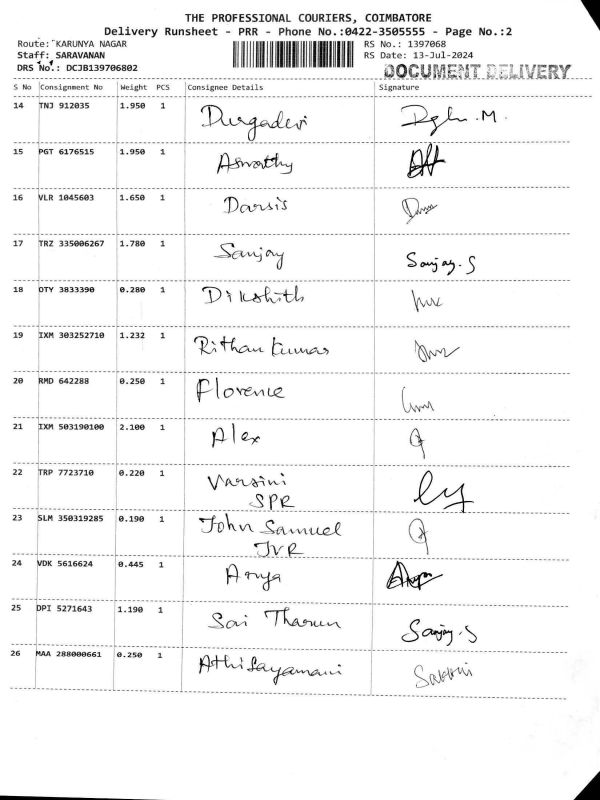 THE PROFESSIONAL COURIERS, COIMBATORE
Delivery Runsheet - PRR - Phone No.:0422-3505555 - Page No.:2
Route: KARUNYA NAGAR RS No.: 1397068
Staff: SARAVANAN RS Date: 13-Jul-2024
DRS No.: DCJB139706802 DOCUMENT DELIVERY
S No Consignment No Weight PCS Consignee Details Signature
14 TNJ 912035 1.950 1 Durgadevi
15 PGT 6176515 1.950 1 Aswathy
16 VLR 1045603 1.650 1 Darsis
17 TRZ 335006267 1.780 1 Sanjay Sanjay.S
18 OTY 3833390 0.280 1 Dikshith
19 IXM 303252710 1.232 1 Rithan kumar
20 RMD 642288 0.250 1 Florence
21 IXM 503190100 2.100 1 Alex
22 TRP 7723710 0.220 1 Varsini
SPR
23 SLM 350319285 0.190 1 John Samuel
JVR
24 VDK 5616624 0.445 1 Arya
25 DPI 5271643 1.190 1 Sai Tharun Sanjay.S
26 MAA 288000661 0.250 1 Athisayamani